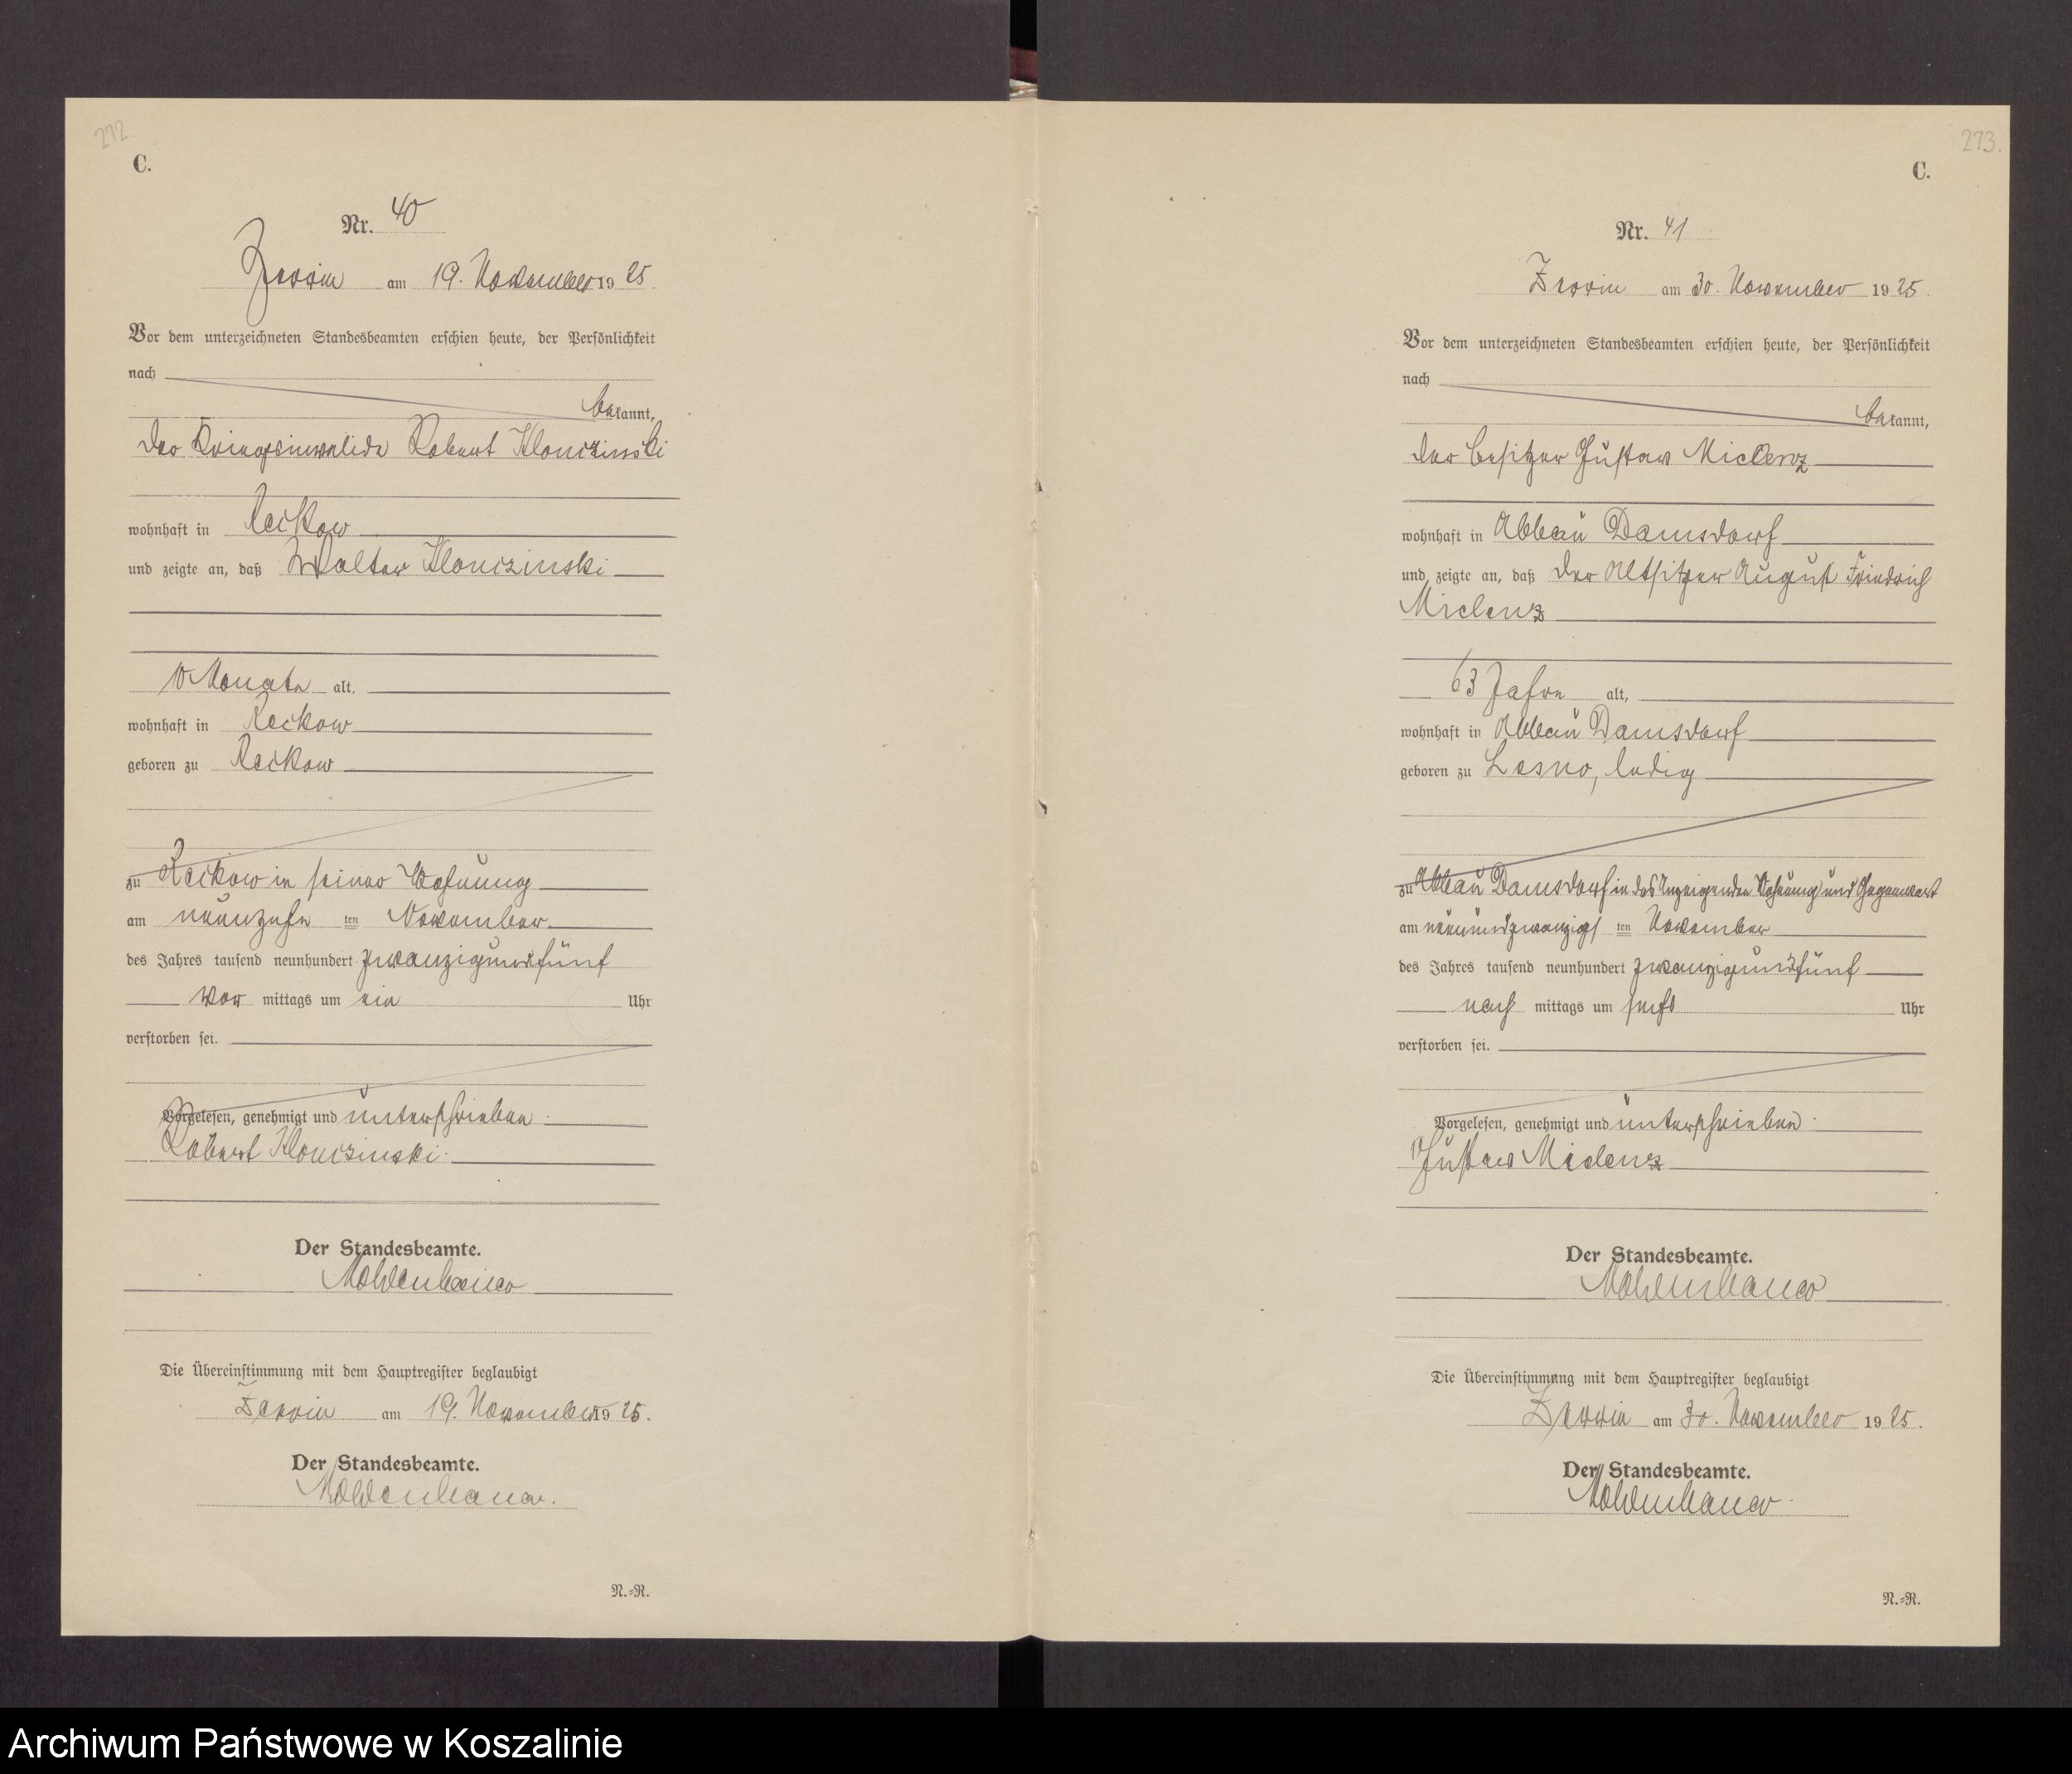 272.
C.
Nr. 40
Zerrin am 19. November 1925.
Vor dem unterzeichneten Standesbeamten erschien heute, der Persönlichkeit
nach
bekannt,
der Kriegsinvalide Robert Klonczinski
wohnhaft in Reckow
und zeigte an, daß Walter Klonczinski
10 Monate alt.
wohnhaft in Reckow
geboren zu Reckow
zu Reckow in seiner Wohnung
am neunzehn ten November
des Jahres tausend neunhundert zwanzigundfünf
vor mittags um ein Uhr
verstorben sei.
Vorgelesen, genehmigt und unterschrieben.
Robert Klonczinski.
Der Standesbeamte.
Die Übereinstimmung mit dem Hauptregister beglaubigt
Zerrin am 19. November 1925.
Der Standesbeamte.
N.=R.
273.
C.
Nr. 41
Zerrin am 30. November 1925.
Vor dem unterzeichneten Standesbeamten erschien heute, der Persönlichkeit
nach
bekannt,
der Besitzer Gustav Mielenz
wohnhaft in Abbau Damsdorf
und zeigte an, daß der Altsitzer August Friedrich
Mielenz
63 Jahre alt,
wohnhaft in Abbau Damsdorf
geboren zu Lesno, ledig
zu Abbau Damsdorf in des Anzeigenden Wohnung und Gegenwart
am neunundzwanzigs ten November
des Jahres tausend neunhundert zwanzigundfünf
nach mittags um sechs Uhr
verstorben sei.
Vorgelesen, genehmigt und unterschrieben.
Gustav Mielenz
Der Standesbeamte.
Die Übereinstimmung mit dem Hauptregister beglaubigt
Zerrin am 30. November 1925.
Der Standesbeamte.
N.=R.
Archiwum Państwowe w Koszalinie